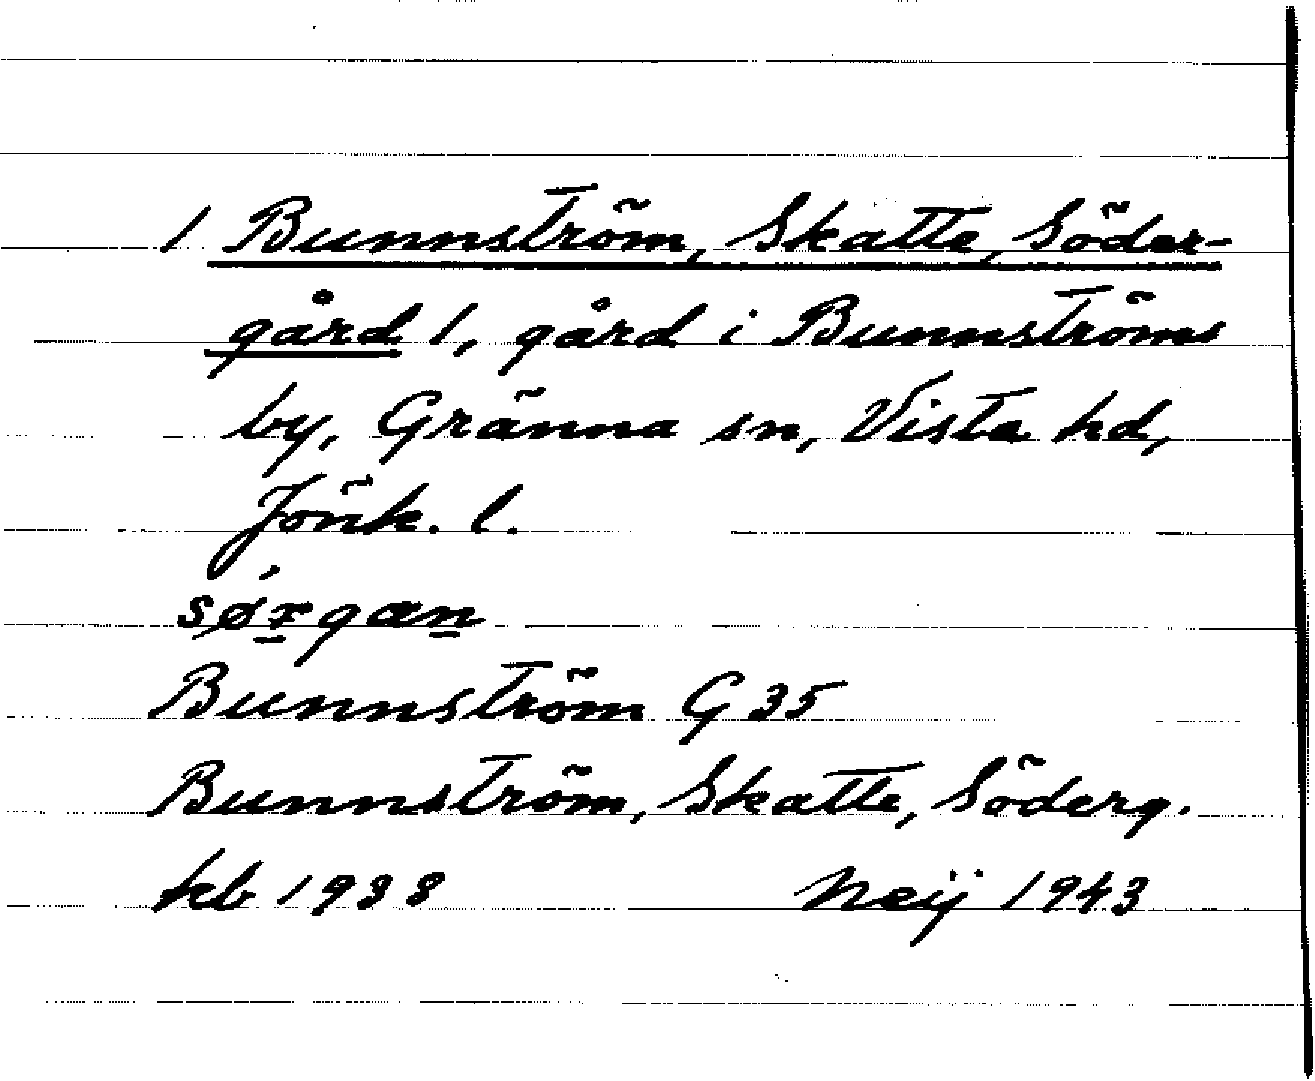 1 Bunnström, Skatte, Söder-
gård 1, gård i Bunnströms
by, Gränna sn, Vista hd,
Jönk. l.
sørgan
Bunnström G 35
Bunnström, Skatte, Söderg.
kb 1938 Neij 1943